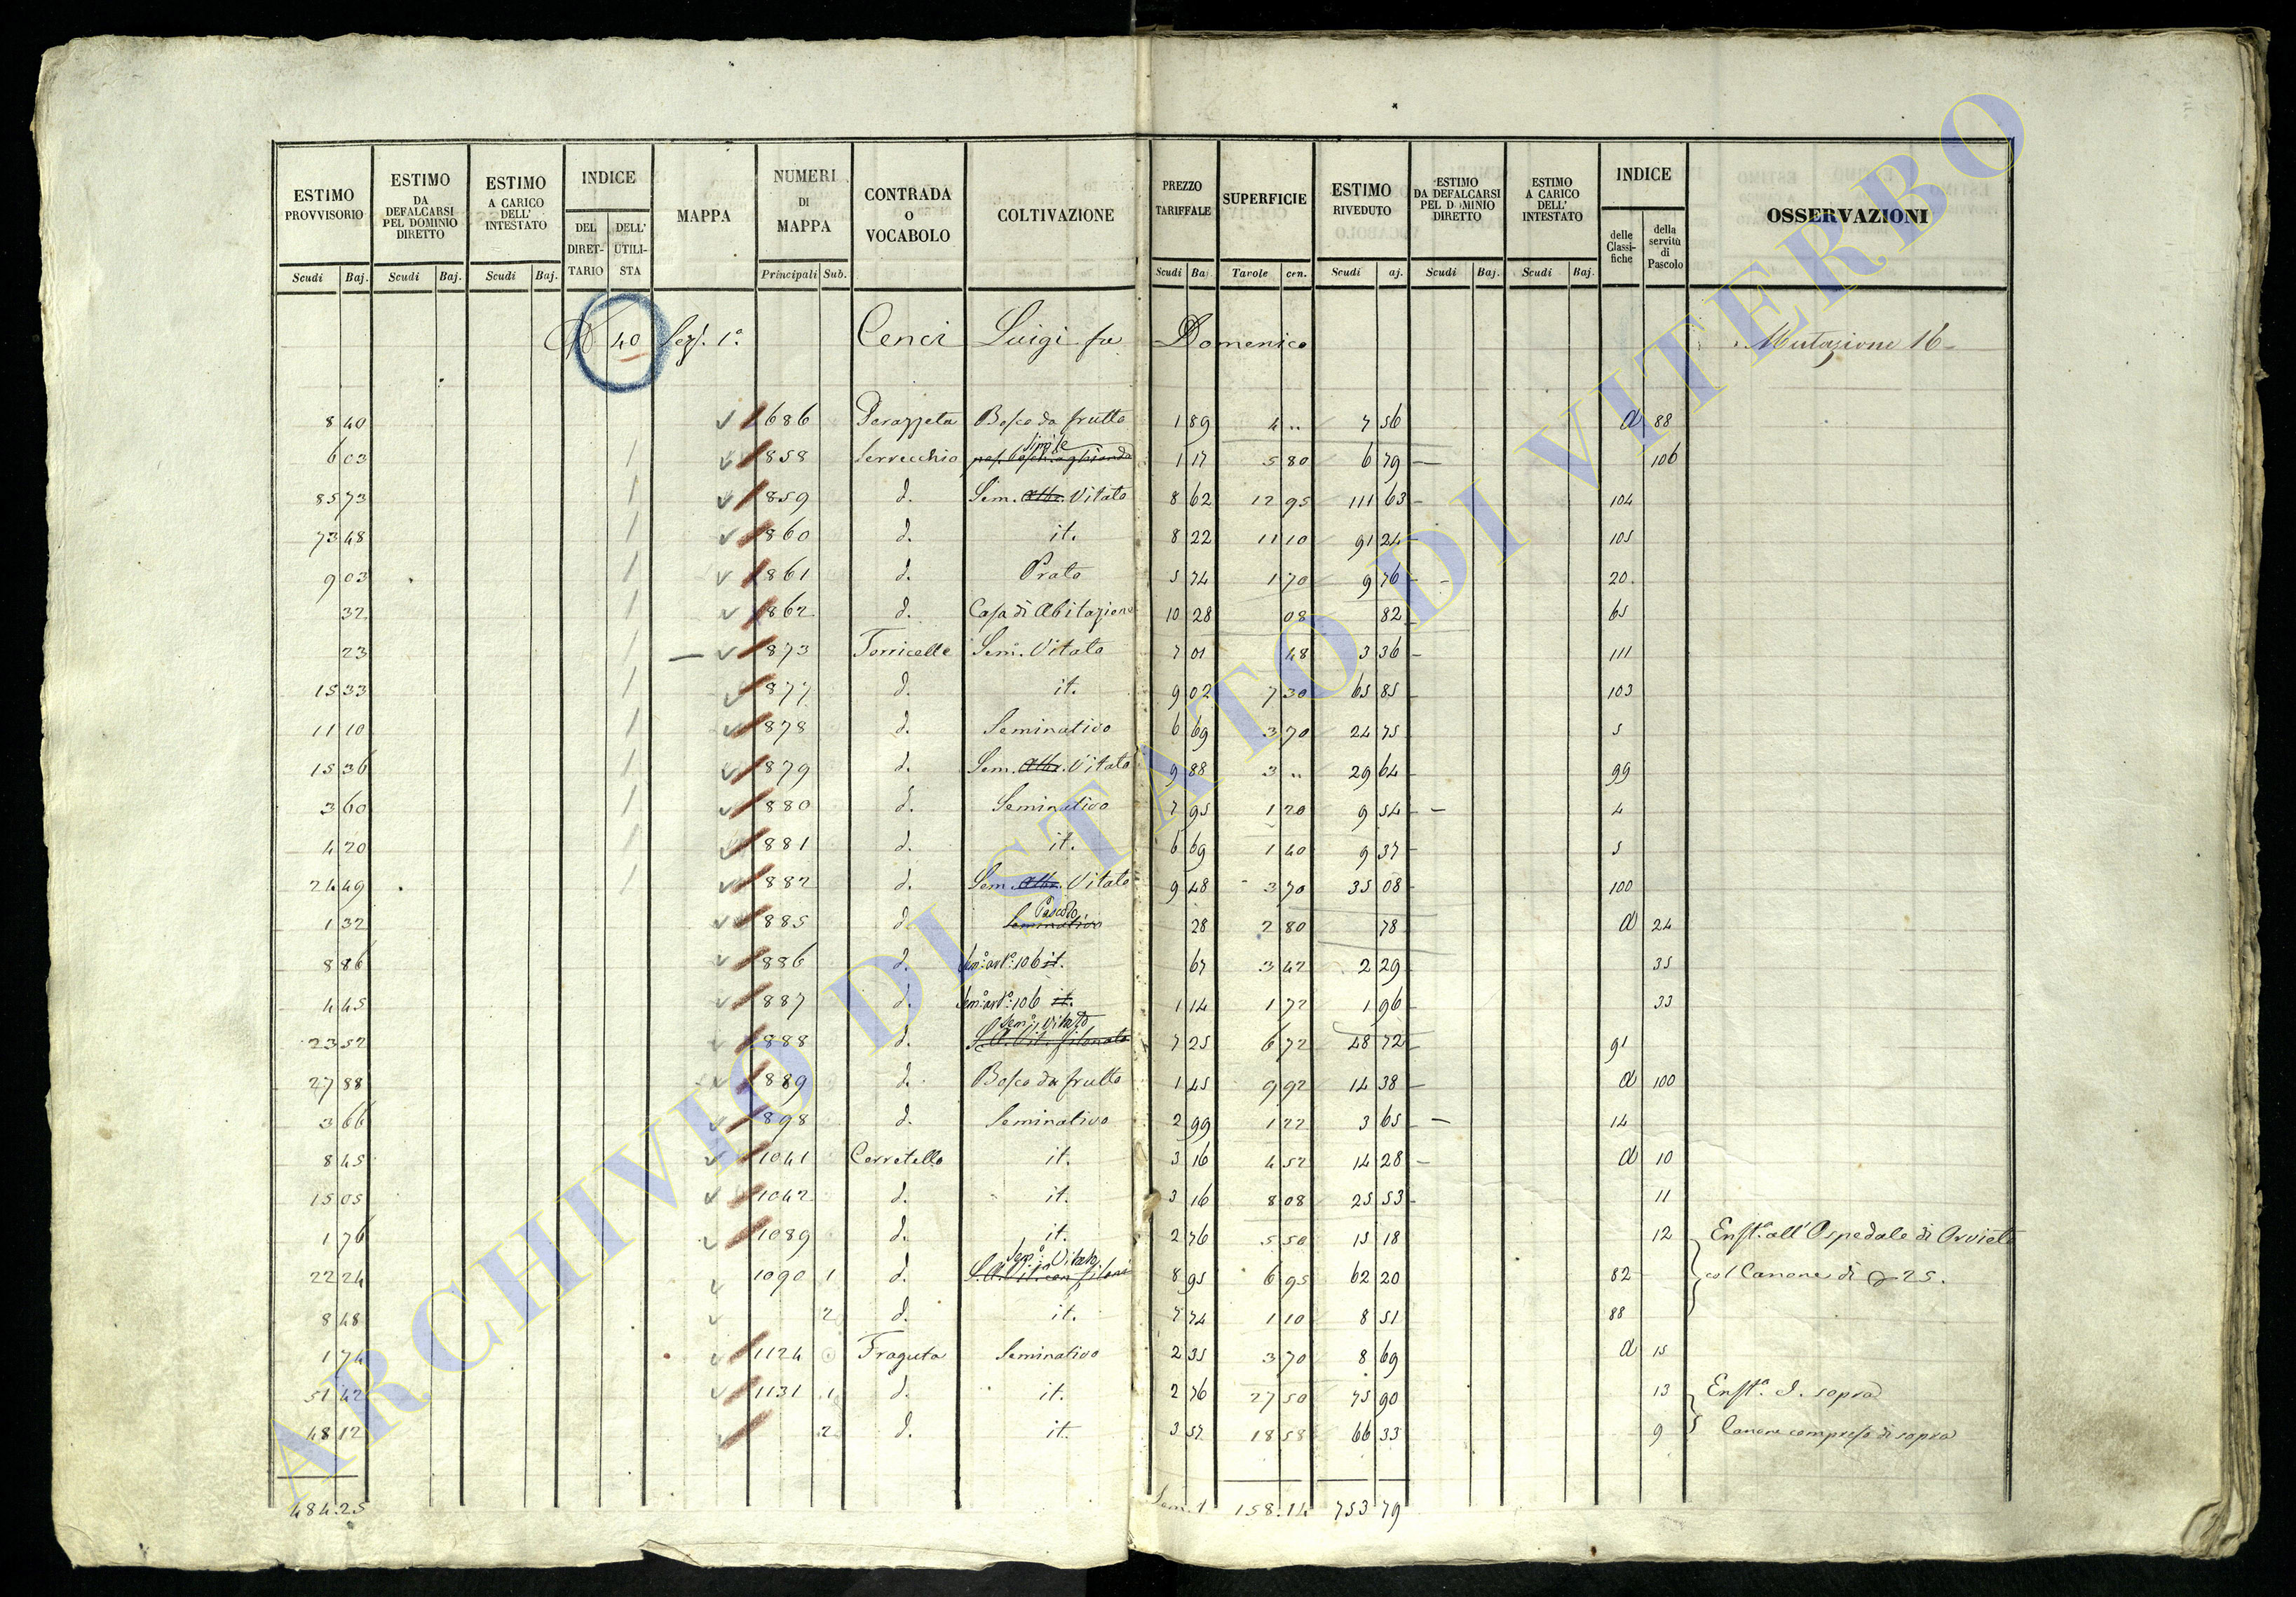 ESTIMO PROVVISORIO Scudi Baj. | ESTIMO DA DEFALCARSI PEL DOMINIO DIRETTO Scudi Baj. | ESTIMO A CARICO DELL' INTESTATO Scudi Baj. | INDICE DEL DIRETTARIO DELL' UTILISTA | MAPPA | NUMERI DI MAPPA Principali Sub. | CONTRADA O VOCABOLO | COLTIVAZIONE | PREZZO TARIFFALE Scudi Ba | SUPERFICIE Tavole cen. | ESTIMO RIVEDUTO Scudi aj. | ESTIMO DA DEFALCARSI PEL DOMINIO DIRETTO Scudi Baj. | ESTIMO A CARICO DELL' INTESTATO Scudi Baj. | INDICE delle Classifiche della servitù di Pascolo | OSSERVAZIONI
40 Sez. 1a. Cenci Luigi fu Domenico Mutazione 16
8 40 686 Perazzeta Bosco da frutto 1 89 4 .. 7 56 a 88
6 03 858 Servecchio simile 1 17 5 80 6 79 106
85 73 859 d. Sem. Alb. Vitato 8 62 12 95 111 63 104
73 48 860 d. it. 8 22 11 10 91 24 105
9 03 861 d. Prato 5 74 1 70 9 76 20
32 862 d. Casa di Abitazione 10 28 08 82 65
23 873 Torricelle Sem. Vitato 7 01 48 3 36 111
15 33 877 d. it. 9 02 7 30 65 85 103
11 10 878 d. Seminativo 6 69 3 70 24 75 5
15 36 879 d. Sem. Alb. Vitato 9 88 3 .. 29 64 99
3 60 880 d. Seminativo 7 95 1 20 9 54 4
4 20 881 d. it. 6 69 1 40 9 37 5
24 49 882 d. Sem. Alb. Vitato 9 48 3 70 35 08 100
1 32 885 d. Seminativo Pascolo 28 2 80 78 a 24
8 86 886 d. Sem.o art.o 106 it. 67 3 42 2 29 35
4 45 887 d. Sem.o art.o 106 it. 1 14 1 72 1 96 33
23 52 888 d. Sem.o Vitato 7 25 6 72 48 72 91
27 88 889 d. Bosco da frutto 1 45 9 92 14 38 a 100
3 66 898 d. Seminativo 2 99 1 22 3 65 14
8 45 1041 Cerretello it. 3 16 4 52 14 28 a 10
15 05 1042 d. it. 3 16 8 08 25 53 11
1 76 1089 d. it. 2 76 5 50 15 18 12 Enft.a all'Ospedale di Orvieto
22 24 1090 1 d. Sem.o Vitato S.A. Vit. con filoni 8 95 6 95 62 20 82 col Canone di 25.
8 48 2 d. it. 7 74 1 10 8 51 88
1 74 1124 Fraguta Seminativo 2 35 3 70 8 69 a 15
51 42 1131 1 d. it. 2 76 27 50 75 90 13 Enft.a d. sopra
48 12 2 d. it. 3 57 18 58 66 33 9 Canone compreso di sopra
484.25 158.14 753 79
ARCHIVIO DI STATO DI VITERBO